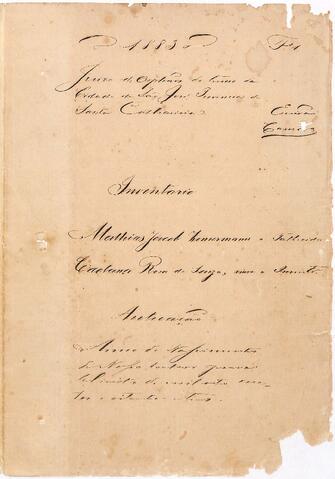 1883 Fl 1
Juizo de Orphãos do termo da
Cidade de São José Provincia de
Santa Catharina Escrivão
Camara
Inventario
Mathias Jacob Zimermann o Fallecido
Caetana Rosa de Souza, viuva e Invent
Autoação
Anno do Nascimento
de Nosso Senhor
de mil oito cen-
tos e oitenta e tres